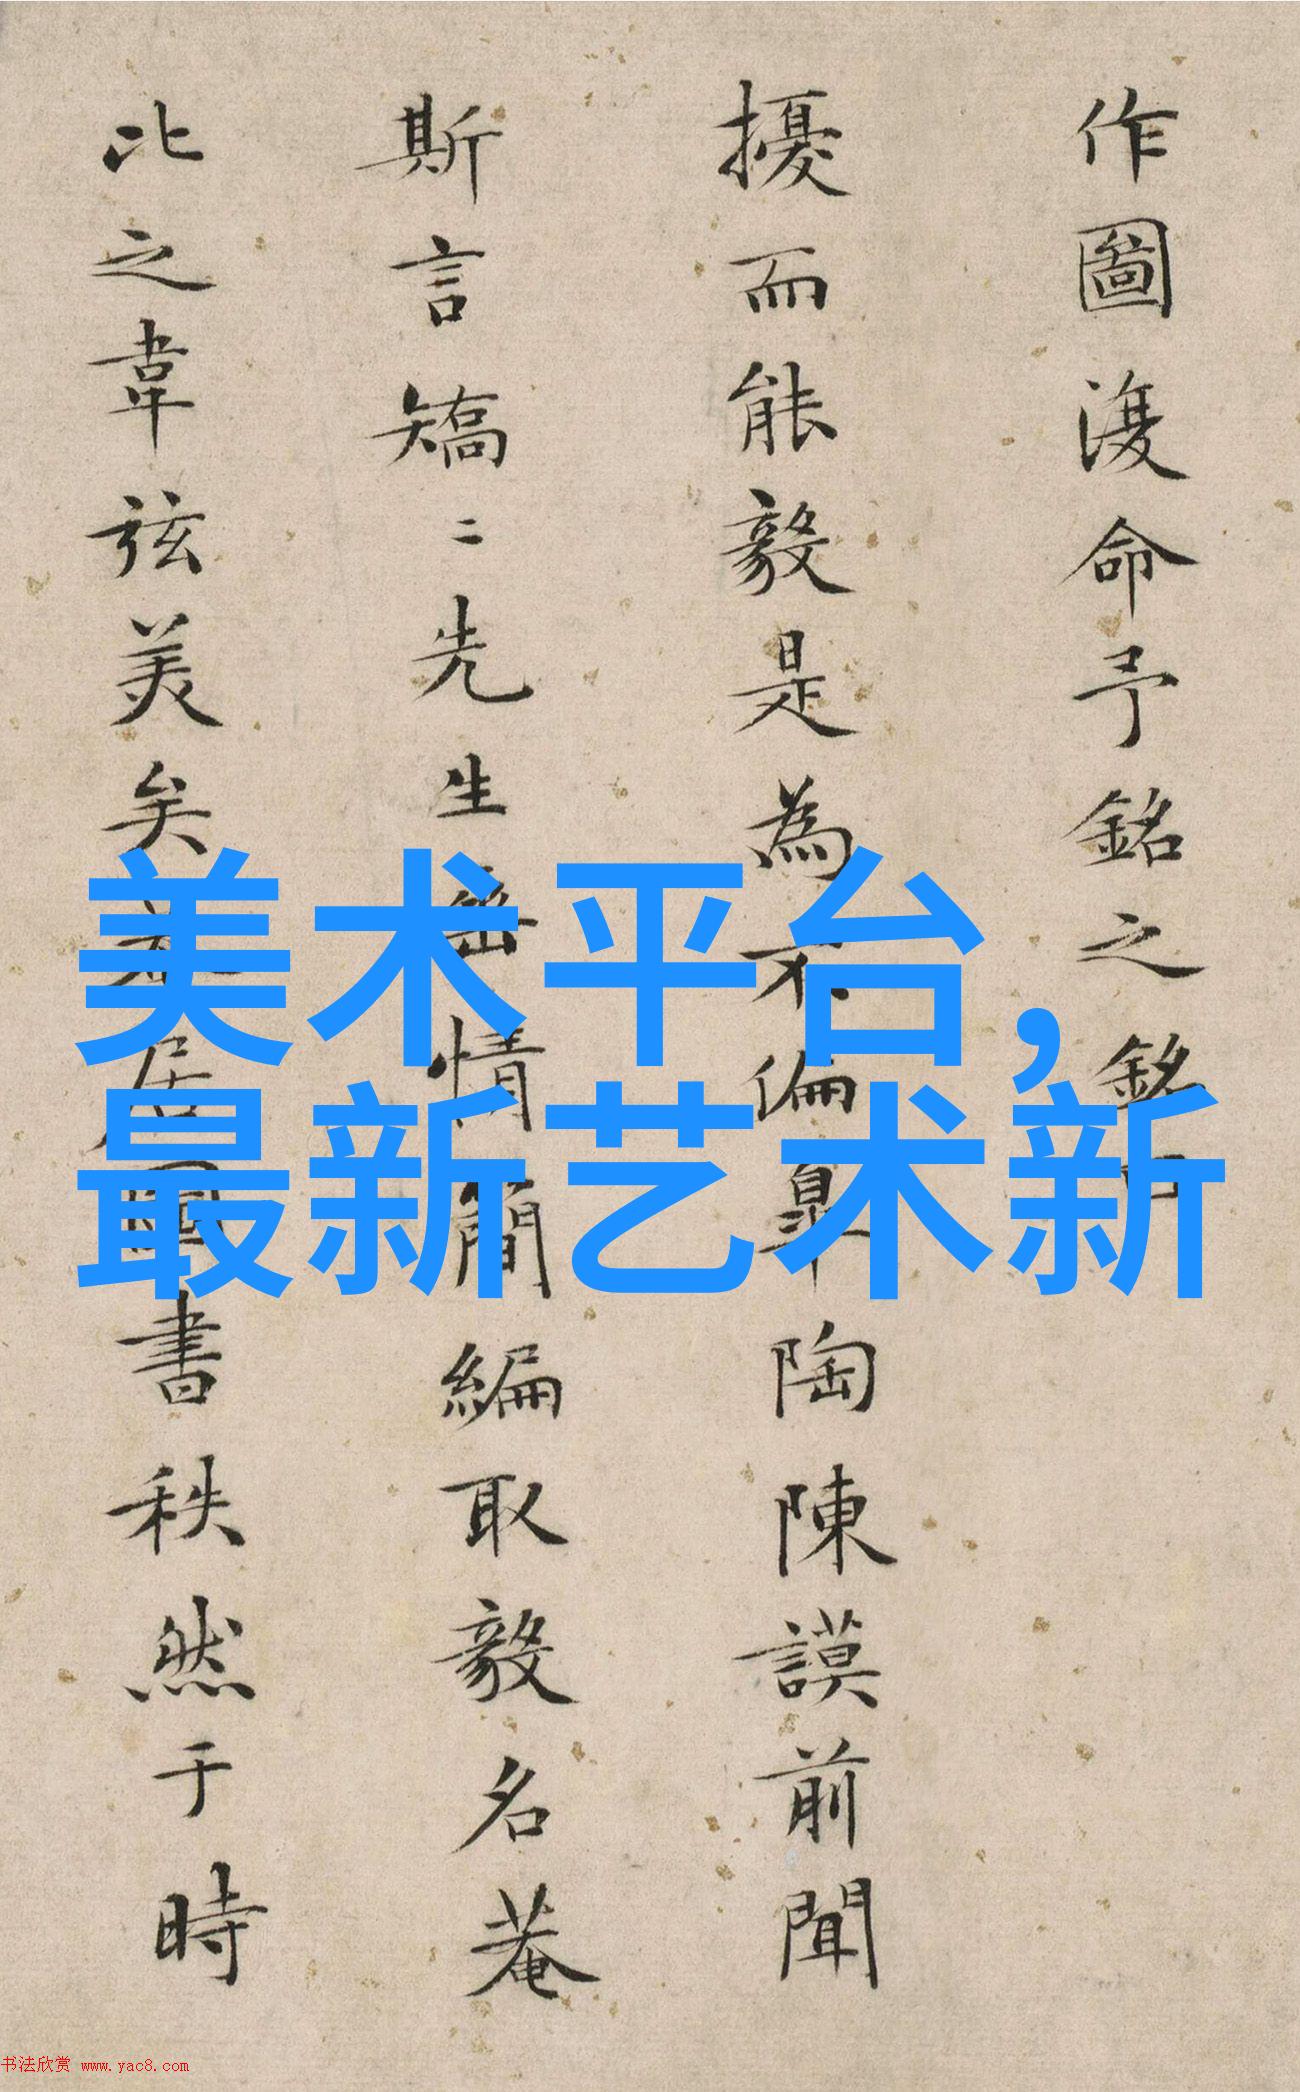 作圖復命予銘之銘曰
擾而能毅是為不偏皐陶陳謨前聞
斯言矯二先生岳情簡編取毅名菴
比之韋弦美矣君居圖書秩然于時
美术平台,
最新艺术新
书法欣赏 www.yac8.com